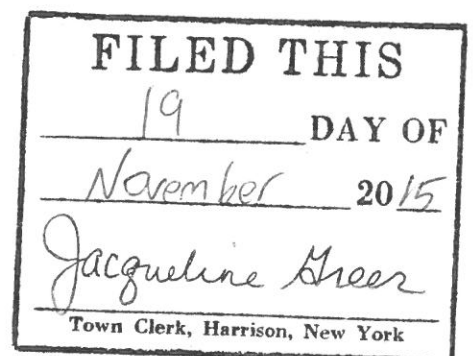 FILED THIS
19 DAY OF
November 2015
Jacqueline Greer
Town Clerk, Harrison, New York